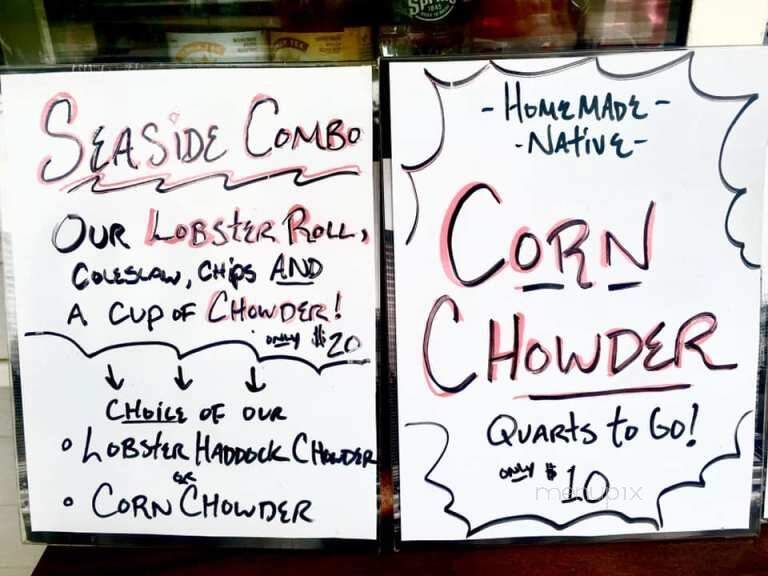 SEASIDE COMBO
OUR LOBSTER ROLL,
COLESLAW, CHIPS AND
A CUP OF CHOWDER!
ONLY $20
CHOICE OF OUR
• LOBSTER HADDOCK CHOWDER
OR
• CORN CHOWDER
- HOMEMADE -
- NATIVE -
CORN
CHOWDER
QUARTS to Go!
ONLY $10
menupix